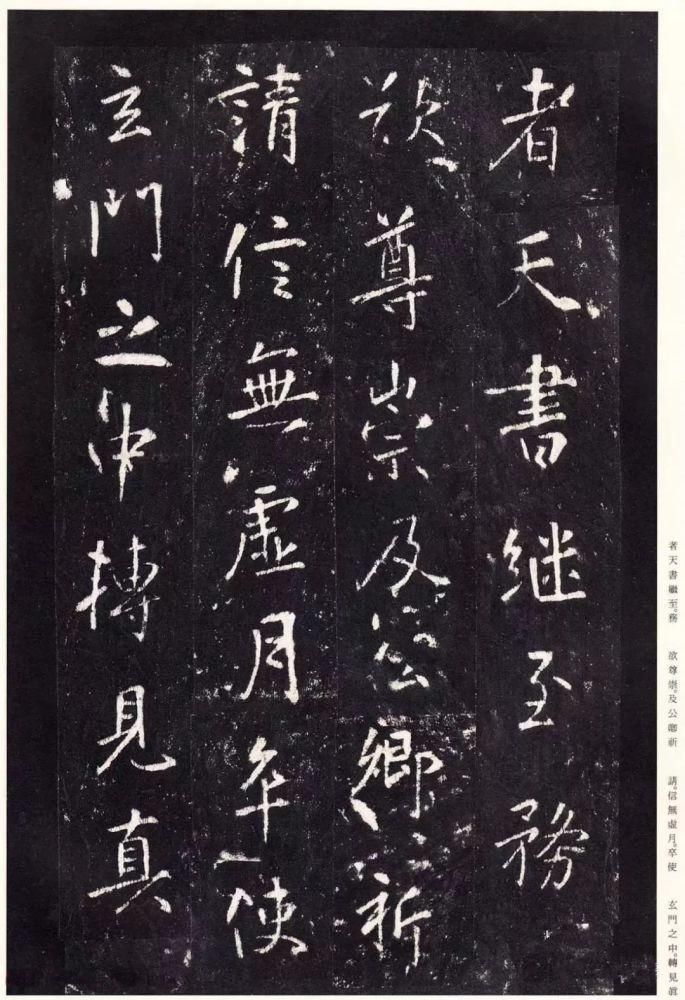 者天書継至務
欲尊崇及公卿祈
請信無虛月卒使
玄門之中轉見真
者天書繼至。務
欲尊崇。及公卿祈
請。信無虛月。卒使
玄門之中。轉見眞